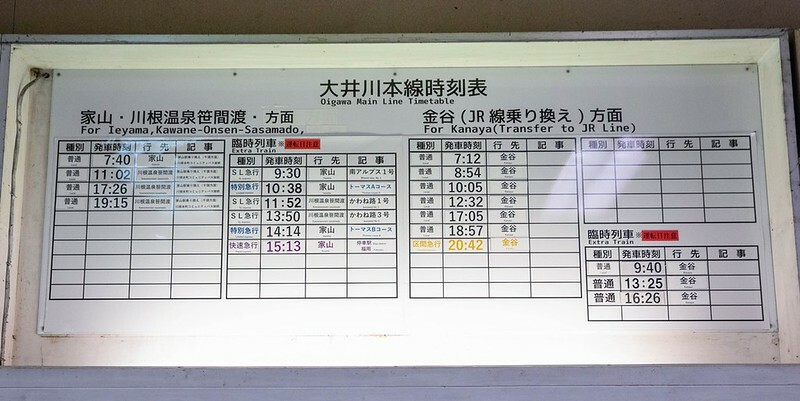 大井川本線時刻表
Oigawa Main Line Timetable
家山・川根温泉笹間渡・方面
For Ieyama,Kawane-Onsen-Sasamado,
種別 発車時刻 行先 記事
普通 7:40 家山
普通 11:02 川根温泉笹間渡
普通 17:26 川根温泉笹間渡
普通 19:15 川根温泉笹間渡
臨時列車 ※運転日注意
Extra Train
種別 発車時刻 行先 記事
SL急行 9:30 家山 南アルプス1号
特別急行 10:38 家山 トーマスAコース
SL急行 11:52 川根温泉笹間渡 かわね路1号
SL急行 13:50 川根温泉笹間渡 かわね路3号
特別急行 14:14 家山 トーマスBコース
快速急行 15:13 家山 停車駅 福用
金谷(JR線乗り換え)方面
For Kanaya(Transfer to JR Line)
種別 発車時刻 行先 記事
普通 7:12 金谷
普通 8:54 金谷
普通 10:05 金谷
普通 12:32 金谷
普通 17:05 金谷
普通 18:57 金谷
区間急行 20:42 金谷
種別 発車時刻 行先 記事
臨時列車 ※運転日注意
Extra Train
種別 発車時刻 行先 記事
普通 9:40 金谷
普通 13:25 金谷
普通 16:26 金谷